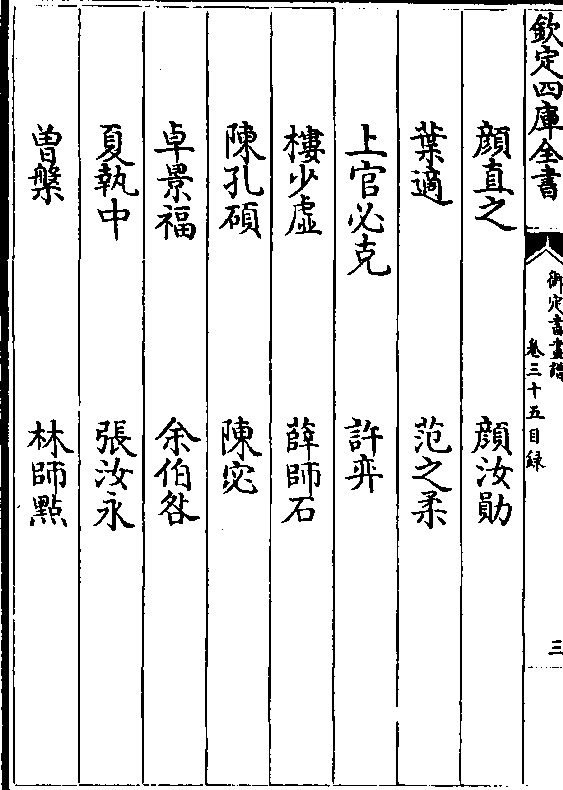 欽定四庫全書
御定書畫譜
卷三十五目録
三
顔直之 顔汝勛
葉適 范之柔
上官必克 許弈
樓少虛 薛師石
陳孔碩 陳宓
卓景福 余伯咎
夏執中 張汝永
曽槃 林師點